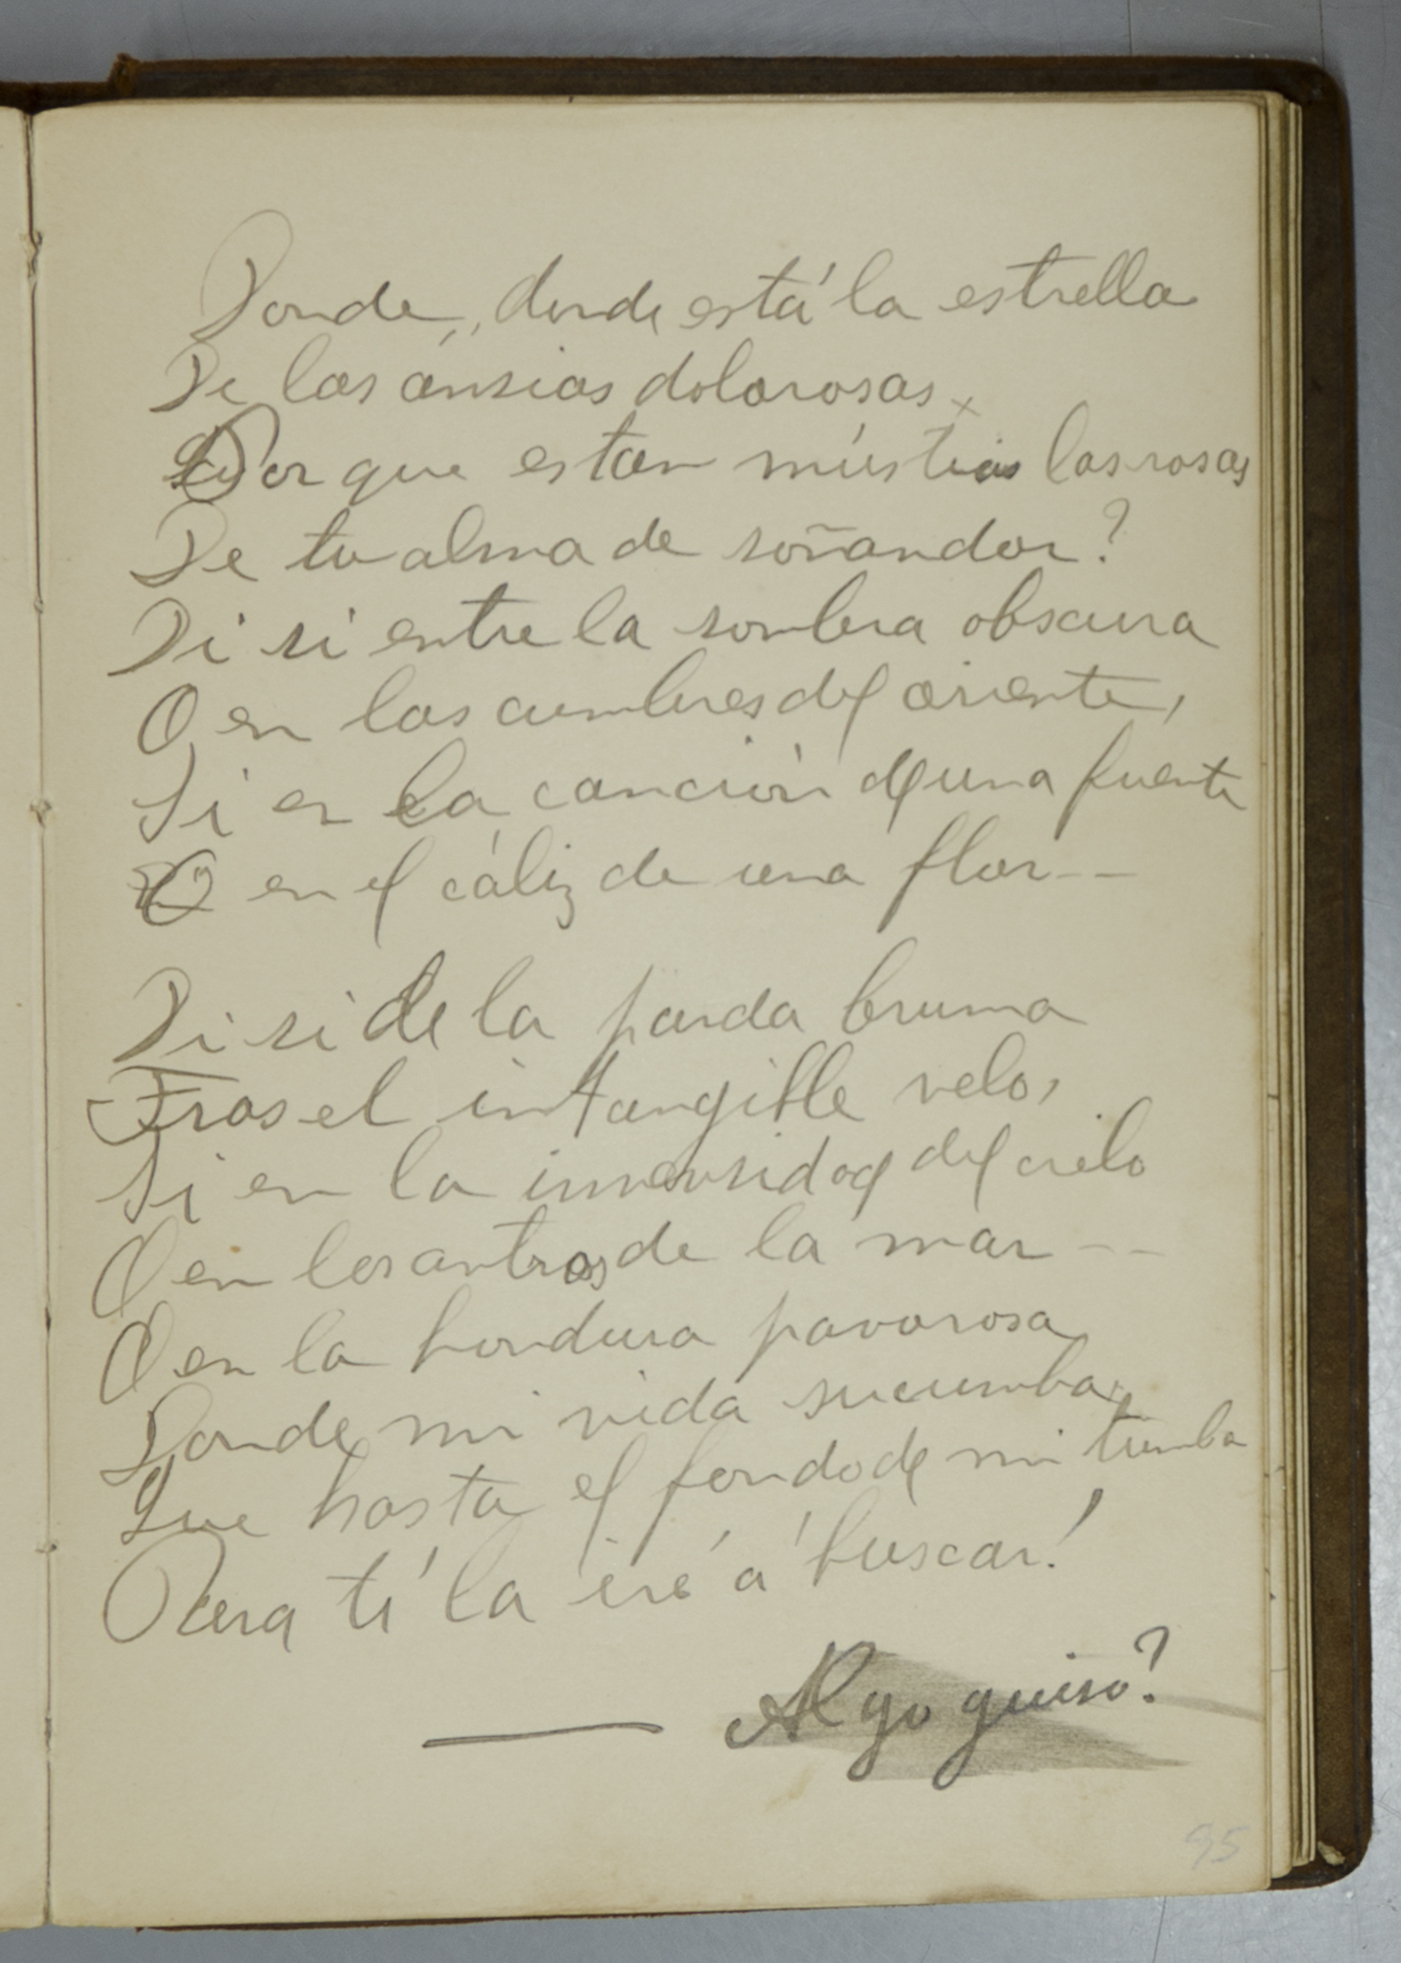 Donde, donde está la estrella
De las ánsias dolorosas,
Por que estan mústias las rosas
De tu alma de soñandor?
Di si entre la sombra obscura
O en las cumbres del oriente,
Si en la canción de una fuente
O en el cáliz de una flor--
Di si de la parda bruma
Tras el intangible velo,
Si en la inmensidad del cielo
O en los antros de la mar--
O en la hondura pavorosa
Donde mi vida sucumba,
Que hasta el fondo de mi tumba
Para tí la iré á buscar!
Algo quiso?
95